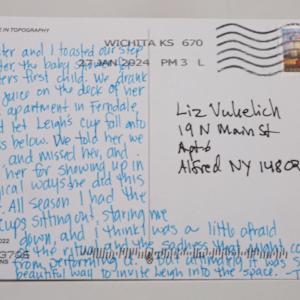 E IN TOPOGRAPHY
WICHITA KS 670
27 JAN 2024 PM 3 L
ster and I toasted our step
ter the baby
ters first child. We drank
juice on the deck of her
apartment in Ferndale,
let Leigh's cup fall onto
ss below. We told her we
and missed her, and
her for showing up in
gical ways she did this
All season I had the
cups sitting out, staring me
down, and I think I was a little afraid
of the ritual and the sadness that might come
from performing it. But ultimately it was such a
beautiful way to invite Leigh into the space.
Liz Vukelich
19 N Main St
Apt 6
Alfred NY 14802
2022